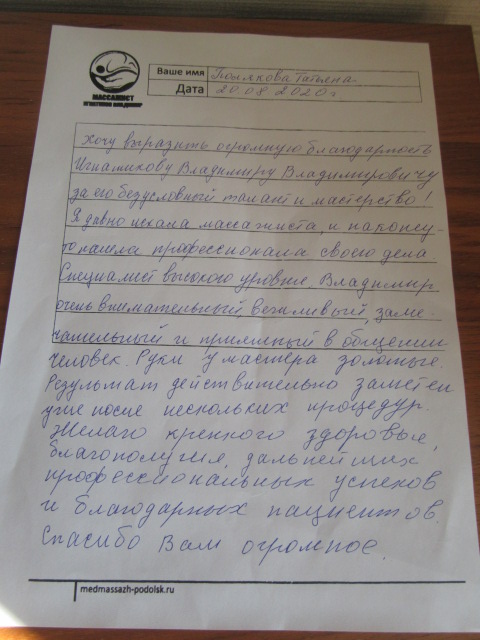 МАССАЖИСТ
ИГНАТИКОВ ВЛАДИМИР
Ваше имя Полякова Татьяна
Дата 20.08.2020г
Хочу выразить огромную благодарность
Игнатикову Владимиру Владимировичу
за его безусловный талант и мастерство!
Я давно искала массажиста, и наконец-
то нашла профессионала своего дела
Специалист высокого уровня. Владимир
очень внимательный, вежливый, заме-
чательный и приятный в общении
человек. Руки у мастера золотые.
Результат действительно заметен
уже после нескольких процедур.
Желаю крепкого здоровья,
благополучия, дальнейших
профессиональных успехов
и благодарных пациентов.
Спасибо Вам огромное.
medmassazh-podolsk.ru